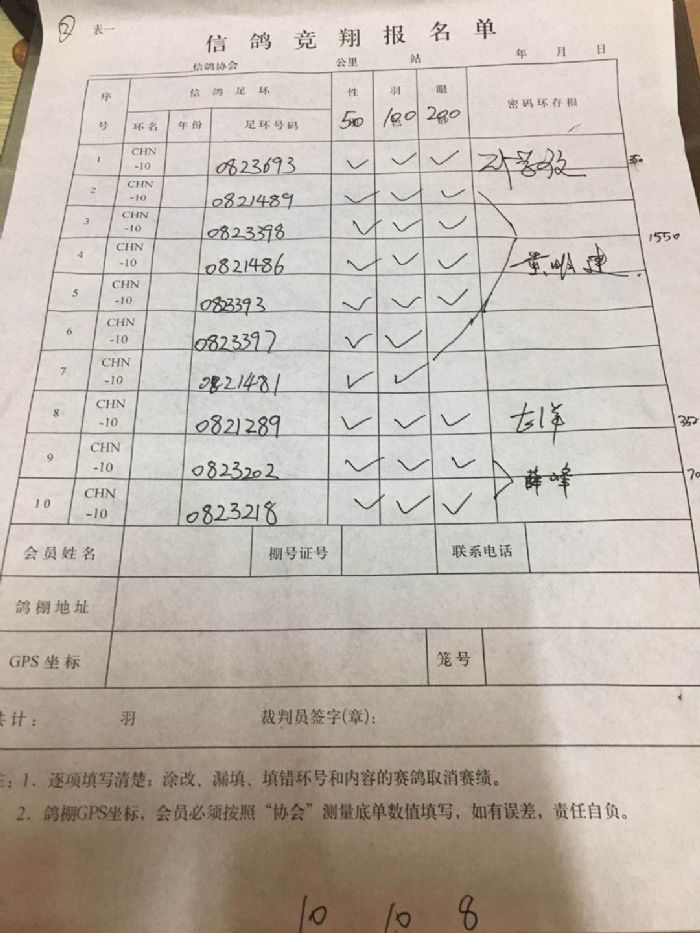 ② 表一
信鸽竞翔报名单
信鸽协会 公里 站 年 月 日
序号 信鸽足环 性 羽 眼 密码环存根
环名 年份 足环号码 500 100 200
1 CHN-10 0823693 ✓ ✓ ✓
2 CHN-10 0821489 ✓ ✓ ✓
3 CHN-10 0823398 ✓ ✓ ✓ 1550
4 CHN-10 0821486 ✓ ✓ ✓ 黄顺建
5 CHN-10 083393 ✓ ✓ ✓
6 CHN-10 0823397 ✓ ✓
7 CHN-10 0821481 ✓ ✓
8 CHN-10 0821289 ✓ ✓ ✓ 350
9 CHN-10 0823202 ✓ ✓ ✓ 薛峰 70
10 CHN-10 0823218 ✓ ✓ ✓
会员姓名 棚号证号 联系电话
鸽棚地址
GPS坐标 笼号
共计: 羽 裁判员签字(章):
注:1. 逐项填写清楚;涂改、漏填、填错环号和内容的赛鸽取消赛绩。
2. 鸽棚GPS坐标,会员必须按照“协会”测量底单数值填写,如有误差,责任自负。
10 10 8